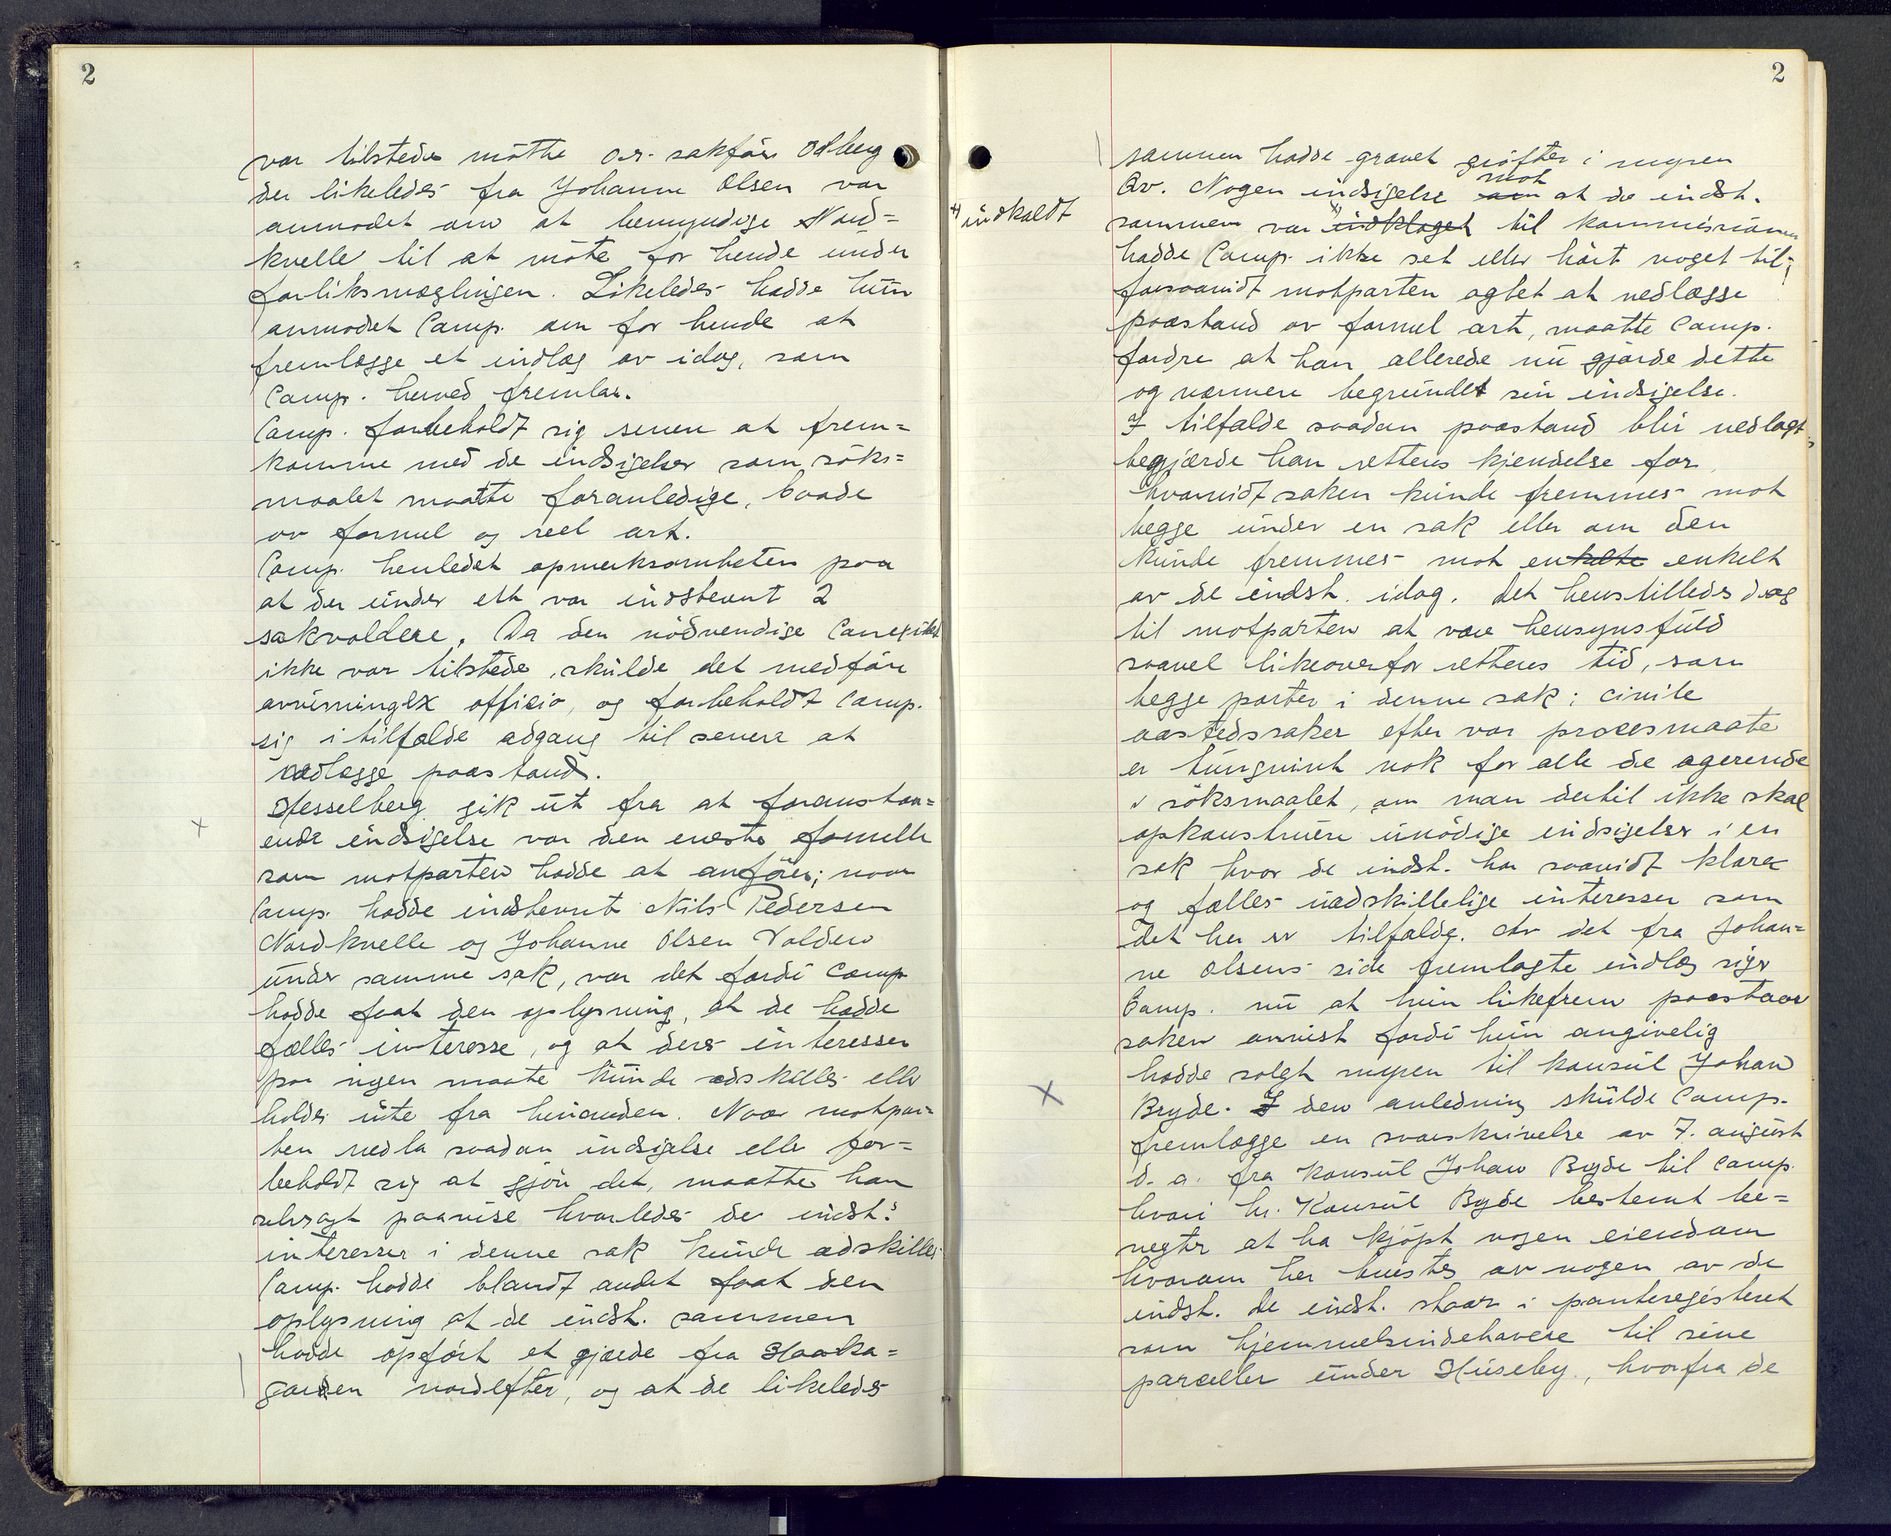 2
var tilstede møtte o.r. sakfører Odberg
der likeledes fra Johanne Olsen var
anmodet om at bemyndige Nord-
kvelle til at møte for hende under
forliksmæglingen. Likeledes hadde hun
anmodet Comp. om for hende at
fremlægge et indlæg av idag, som
Comp. herved fremla.
Comp. forbeholdt sig senere at frem-
komme med de indsigelser som søks-
maalet maatte foranledige, baade
av formel og reel art.
Comp. henledet opmerksomheten paa
at der under ett var indstevnt 2
sakvoldere. Da den nødvendige
ikke var tilstede, skulde det medføre
avvisning ex officio, og forbeholdt Comp.
sig i tilfælde adgang til senere at
nedlægge paastand.
Hesselberg gik ut fra at foranstaa-
ende indsigelse var den eneste formelle
som motparten hadde at anføre; naar
Comp. hadde indstevnt Nils Pedersen
Nordkvelle og Johanne Olsen Valden
under samme sak, var det fordi Comp.
hadde faat den oplysning, at de hadde
fælles interesse, og at deres interesser
paa ingen maate kunde adskilles eller
holdes ute fra hinanden. Naar motpar-
ten nedla saadan indsigelse eller for-
beholdt sig at gjøre det, maatte han
selvsagt paavise hvorledes de indst.s
interesser i denne sak kunde adskilles.
Comp. hadde blandt andet faat den
oplysning at de indst. sammen
hadde opført et gjærde fra Haaka-
gaarden nordefter, og at de likeledes
2
sammen hadde gravet grøfter i myren
Av. Nogen indsigelse om mot at de indst.
x) indkaldt
sammen var x) indklaget til kommissionen
hadde Comp. ikke set eller hørt noget til;
forsaavidt motparten agtet at nedlægge
paastand av formel art, maatte Comp.
fordre at han allerede nu gjorde dette
og nærmere begrundet sin indsigelse.
I tilfælde saadan paastand blir nedlagt,
begjærde han rettens kjendelse for
hvorvidt saken kunde fremmes mot
begge under en sak eller om den
kunde fremmes mot enkelte enkelt
av de indst. idag. Det henstilledes dog
til motparten at være hensynsfuld
saavel likeoverfor rettens tid, som
begge parter i denne sak; civile
aastedssaker efter vor procesmaate
er tungvint nok for alle de agerende
i søksmaalet, om man dertil ikke skal
opkonstruere unødige indsigelser i en
sak hvor de indst. har saavidt klare
og fælles uadskillelige interesser som
det her er tilfælde. Av det fra Johan-
ne Olsens side fremlagte indlæg siger
Comp. nu at hun likefrem paastaar
saken avvist fordi hun angivelig
hadde solgt myren til konsul Johan
Bryde. I den anledning skulde Comp.
fremlægge en svarskrivelse av 7. august
d. a. fra Konsul Johan Bryde til Comp.
hvori hr. Konsul Bryde bestemt be-
negter at ha kjøpt nogen eiendom
hvorom her tvistes av nogen av de
indst. De indst. staar i panteregisteret
som hjemmelsindehavere til sine
parceller under Huseby, hvorfra de